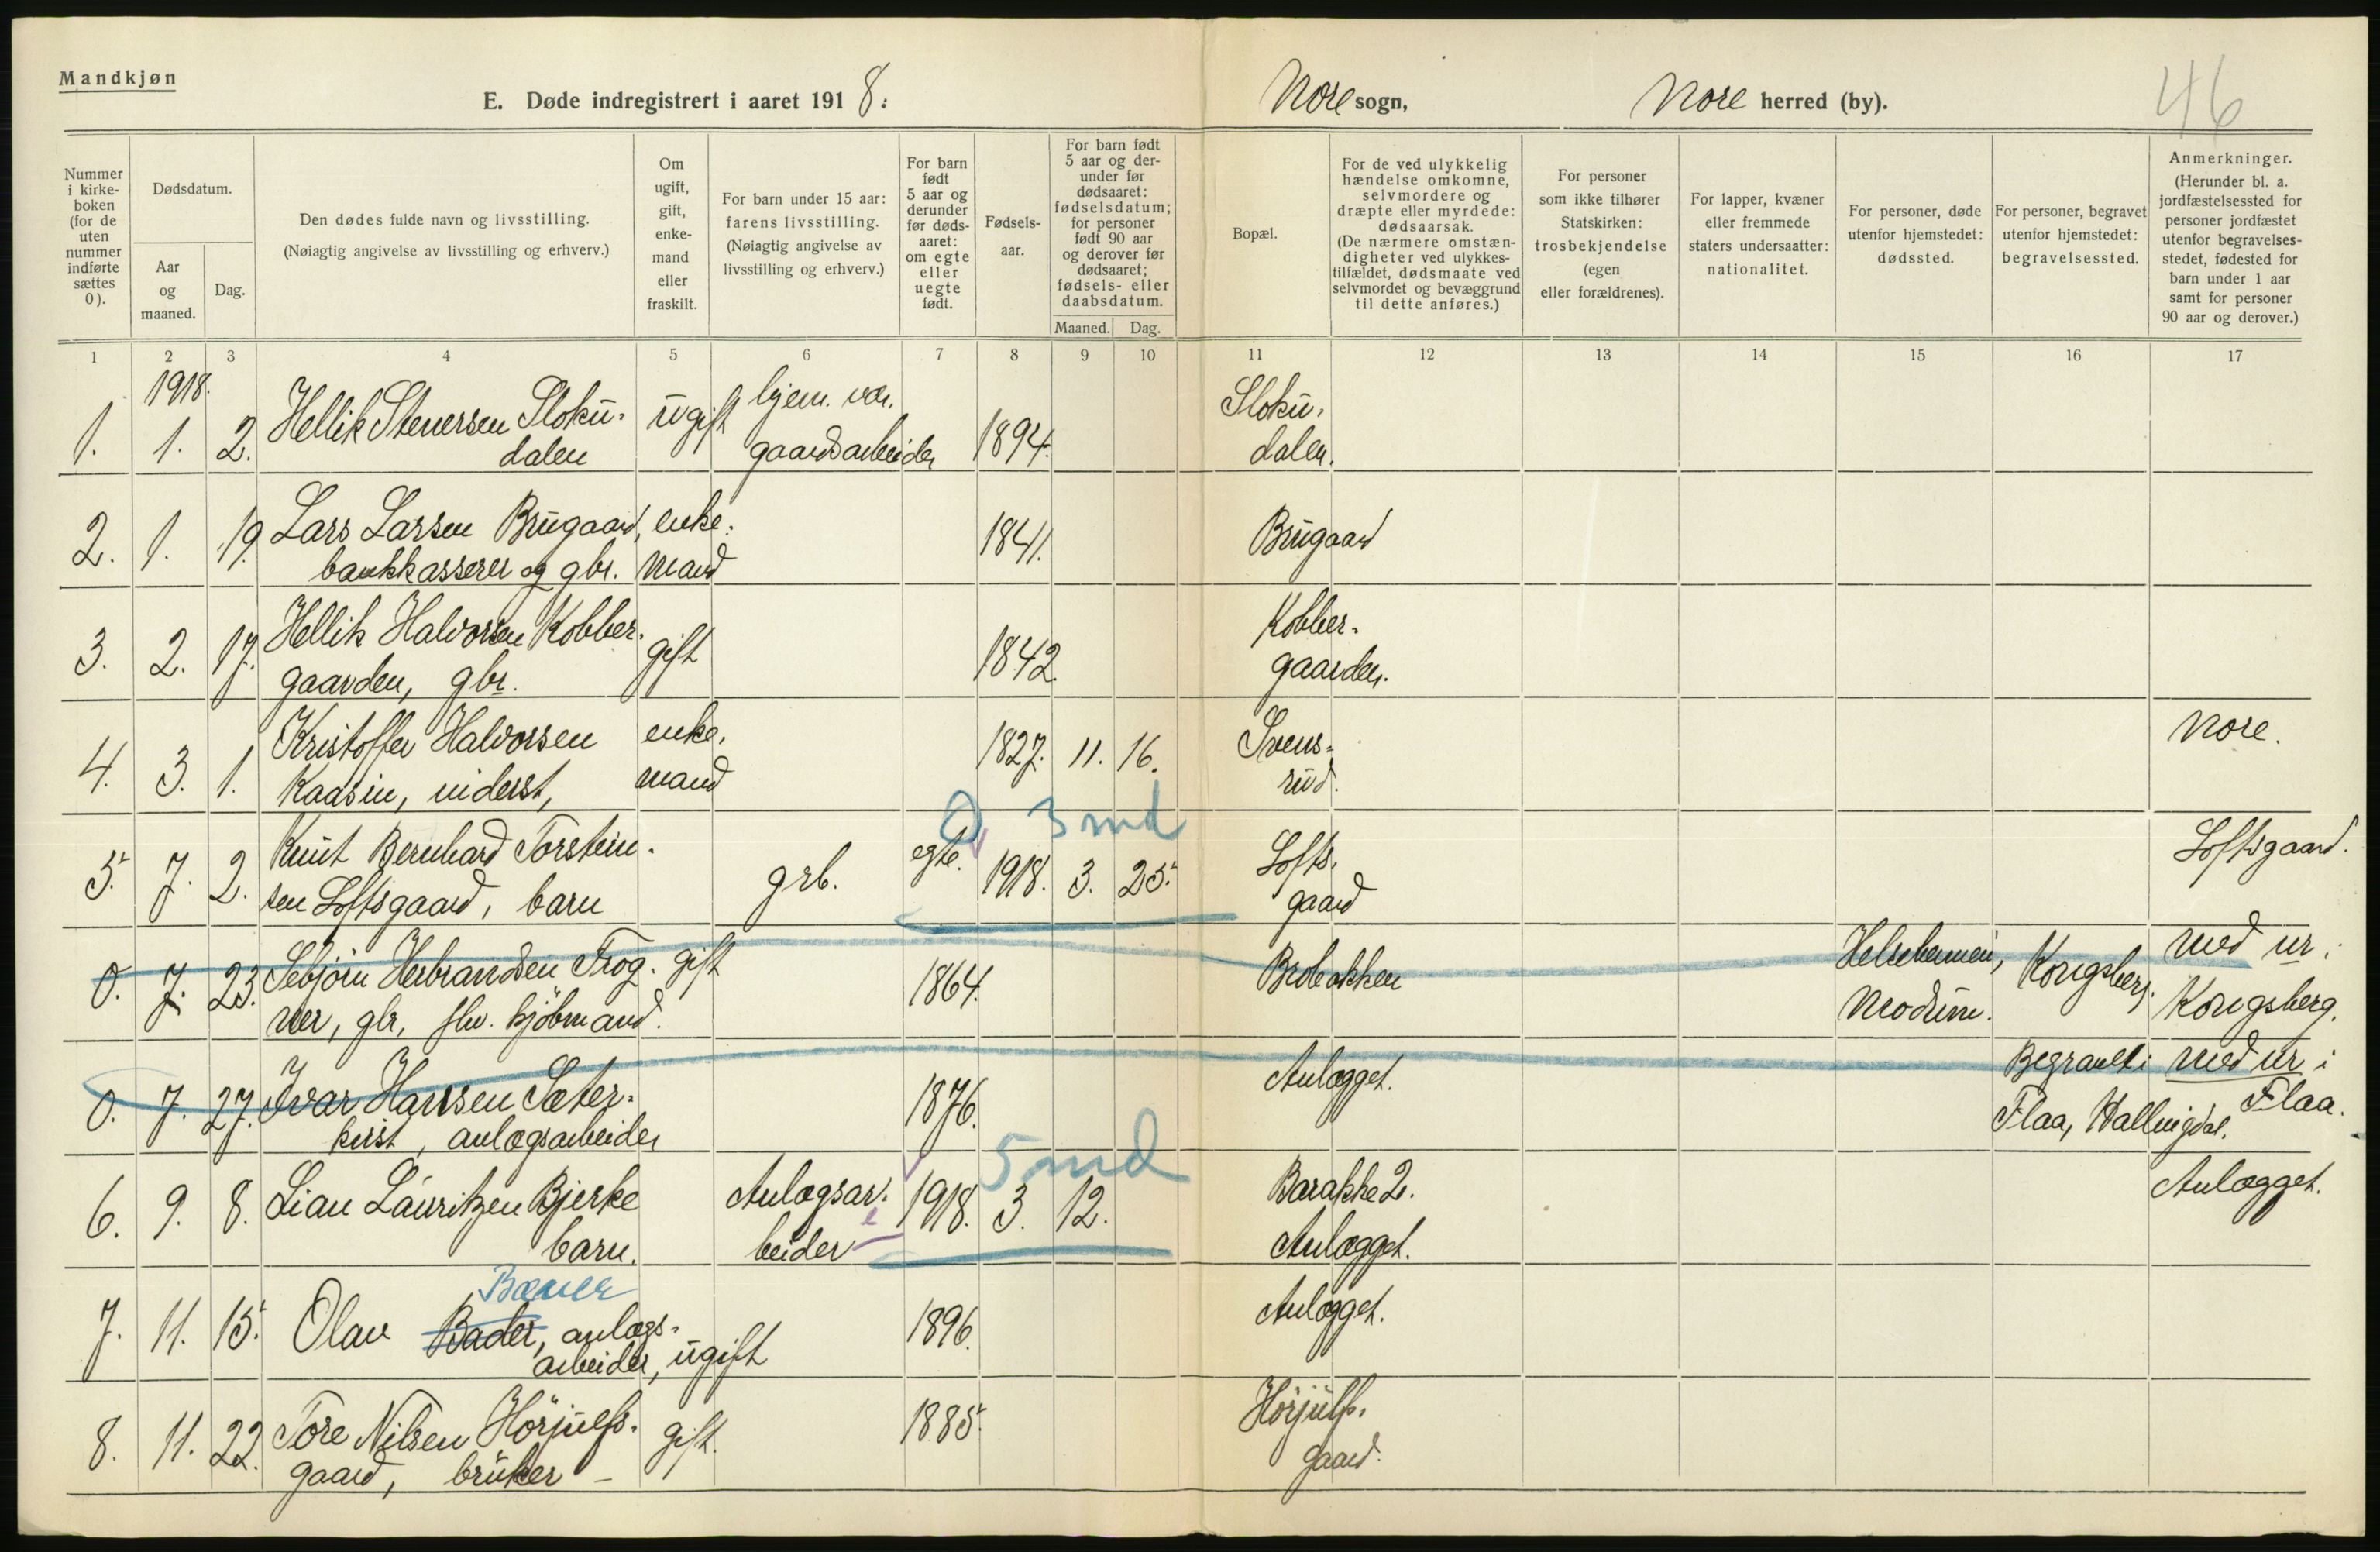 Mandkjøn
E. Døde indregistrert i aaret 1918.
Nore sogn,
Nore herred (by).
46
Nummer i kirke-boken (for de uten nummer indførte sættes 0).
Dødsdatum.
Aar og maaned.
Dag.
Den dødes fulde navn og livsstilling.
(Nøiagtig angivelse av livsstilling og erhverv.)
Om ugift, gift, enke-mand eller fraskilt.
For barn under 15 aar: farens livsstilling.
(Nøiagtig angivelse av livsstilling og erhverv.)
For barn født 5 aar og derunder før døds-aaret: om egte eller uegte født.
Fødsels-aar.
For barn født 5 aar og der-under før dødsaaret: fødselsdatum; for personer født 90 aar og derover før dødsaaret; fødsels- eller daabsdatum.
Maaned.
Dag.
Bopæl.
For de ved ulykkelig hændelse omkomne, selvmordere og dræpte eller myrdede: dødsaarsak.
(De nærmere omstæn-digheter ved ulykkes-tilfældet, dødsmaate ved selvmordet og bevæggrund til dette anføres.)
For personer som ikke tilhører Statskirken: trosbekjendelse (egen eller forældrenes).
For lapper, kvæner eller fremmede staters undersaatter: nationalitet.
For personer, døde utenfor hjemstedet: dødssted.
For personer, begravet utenfor hjemstedet: begravelsessted.
Anmerkninger.
(Herunder bl. a. jordfæstelsessted for personer jordfæstet utenfor begravelses-stedet, fødested for barn under 1 aar samt for personer 90 aar og derover.)
1 2 3 4 5 6 7 8 9 10 11 12 13 14 15 16 17
1918.
1. 1. 2. Hellik Stenersen Sloku- ugift hjem. vær. 1894. Sloku-
dalen gaardsarbeider dalen.
2. 1. 19. Lars Larsen Brugaard, enke- 1841. Brugaard
bankkasserer og gbr. mand
3. 2. 17. Hellik Halvorsen Kobber- gift 1842. Kobber-
gaarden, gbr. gaarden.
4. 3. 1. Kristoffer Halvorsen enke- 1827. 11. 16. Svens- Nore.
Kaasin, inderst, mand rud.
3 md
5. 7. 2. Knut Bernhard Torstein- grb. egte. 1918. 3. 25. Lofts- Loftsgaard.
sen Loftsgaard, barn gaard
0. 7. 23. Sebjörn Herbrandsen Trog- gift 1864. Brobakken Kongsberg. med ur i
ner, gbr, fhv. kjöbmand. Modum. Kongsberg.
0. 7. 27. Ivar Hansen Sæter- 1876. Anlægget. Begravet i med ur i
kvist, anlægsarbeider Flaa, Hallingdal. Flaa.
5 md
6. 9. 8. Lian Lauritzen Bjerke Anlægsar- 1918. 3. 12. Barakke 2. Anlægget.
barn. beider e Anlægget.
7. 11. 15. Olav Bader, anlægs- 1896. Anlægget.
arbeider, ugift
8. 11. 22. Tore Nilsen Hörjulfs- gift. 1885. Hörjulfs-
gaard, bruker – gaard.